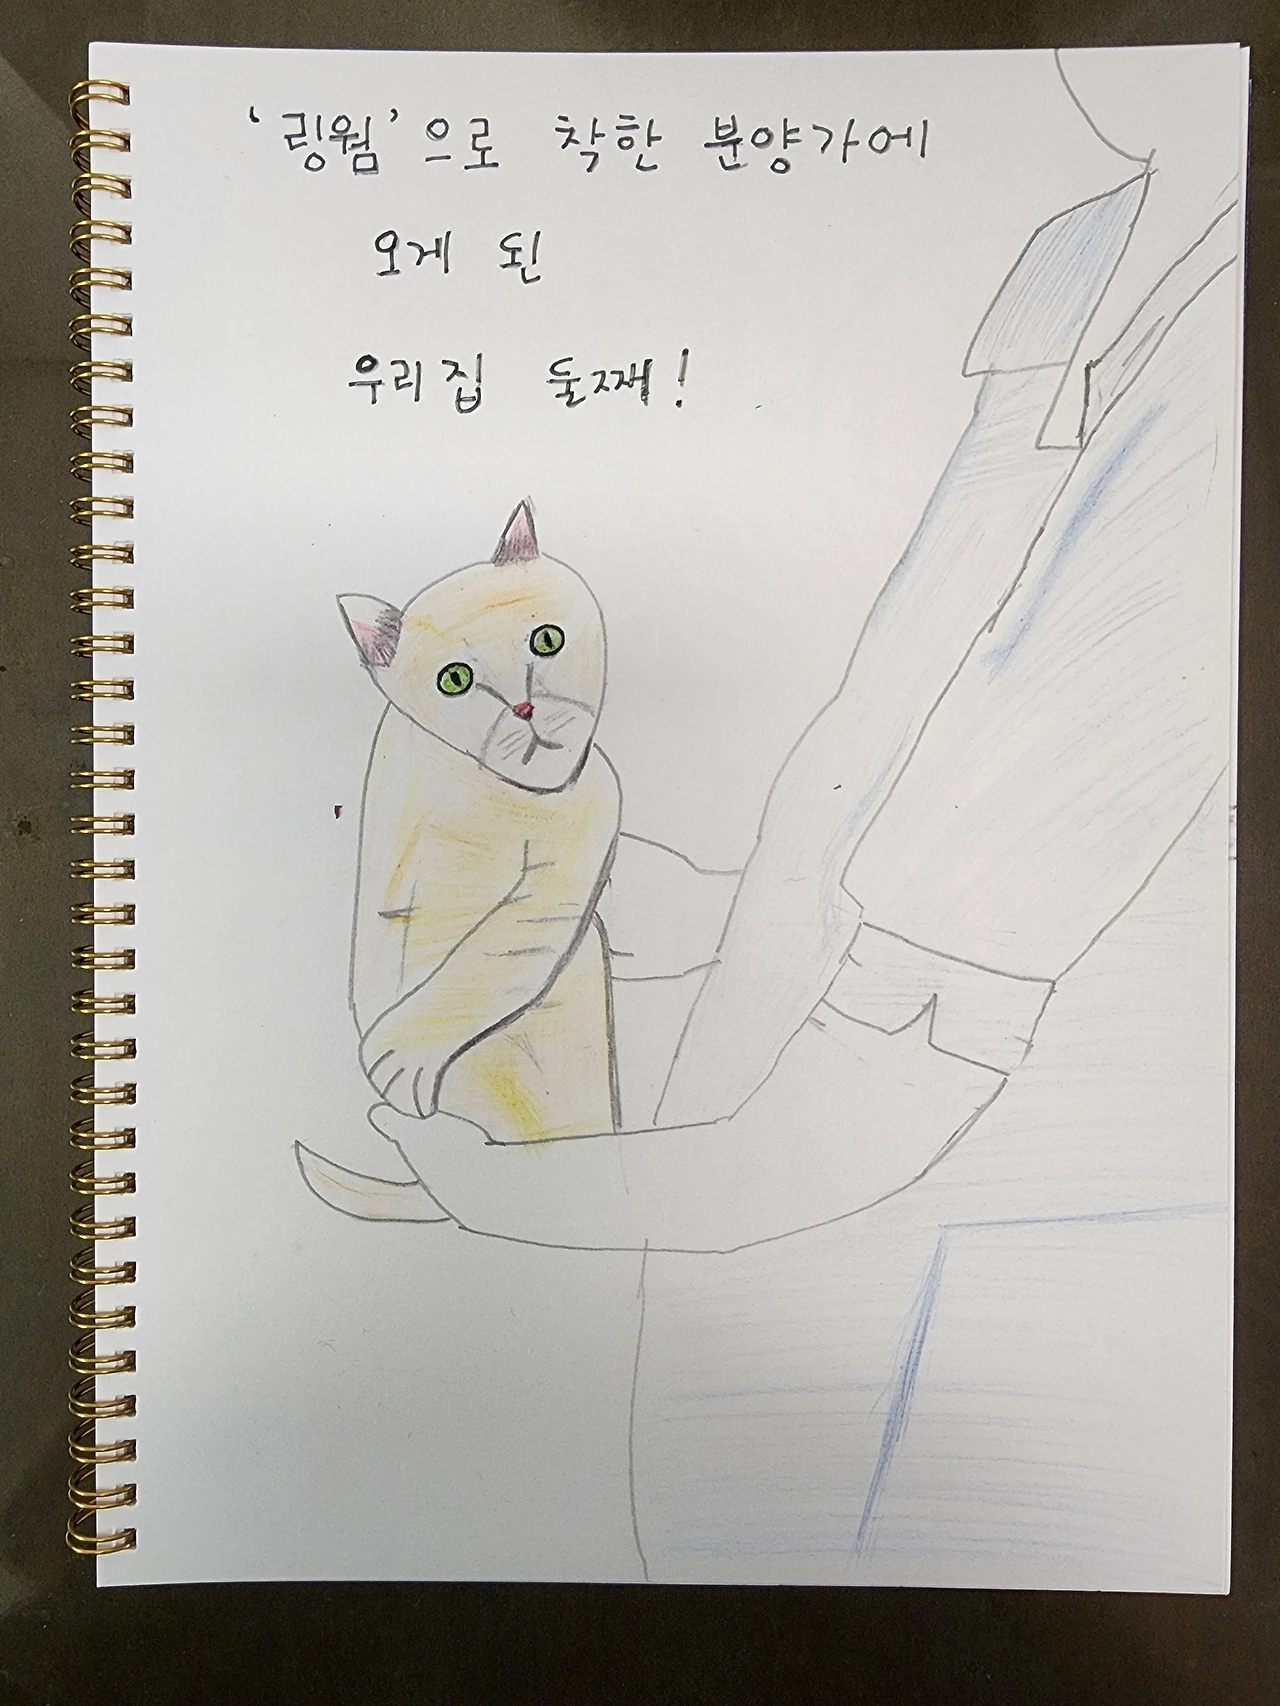 '링웜'으로 착한 분양가에
오게 된
우리집 둘째!